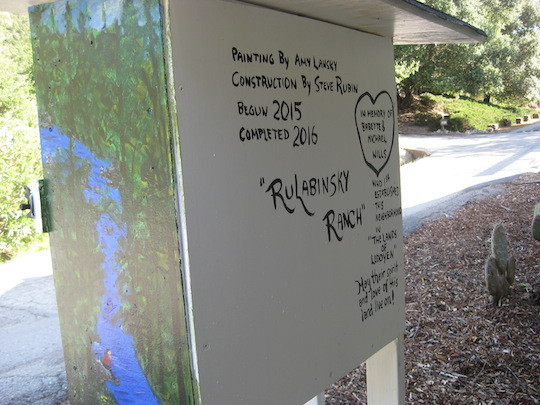 PAINTING BY AMY LANSKY
CONSTRUCTION BY STEVE RUBIN
BEGUN 2015
COMPLETED 2016
"RULABINSKY
RANCH"
IN MEMORY OF
BABETTE &
MICHAEL
WILLS
WHO
ESTABLISHED
THIS
NEIGHBORHOOD
IN
"THE LANDS
OF
LOOYEN"
May their spirit
and love of this
land live on!